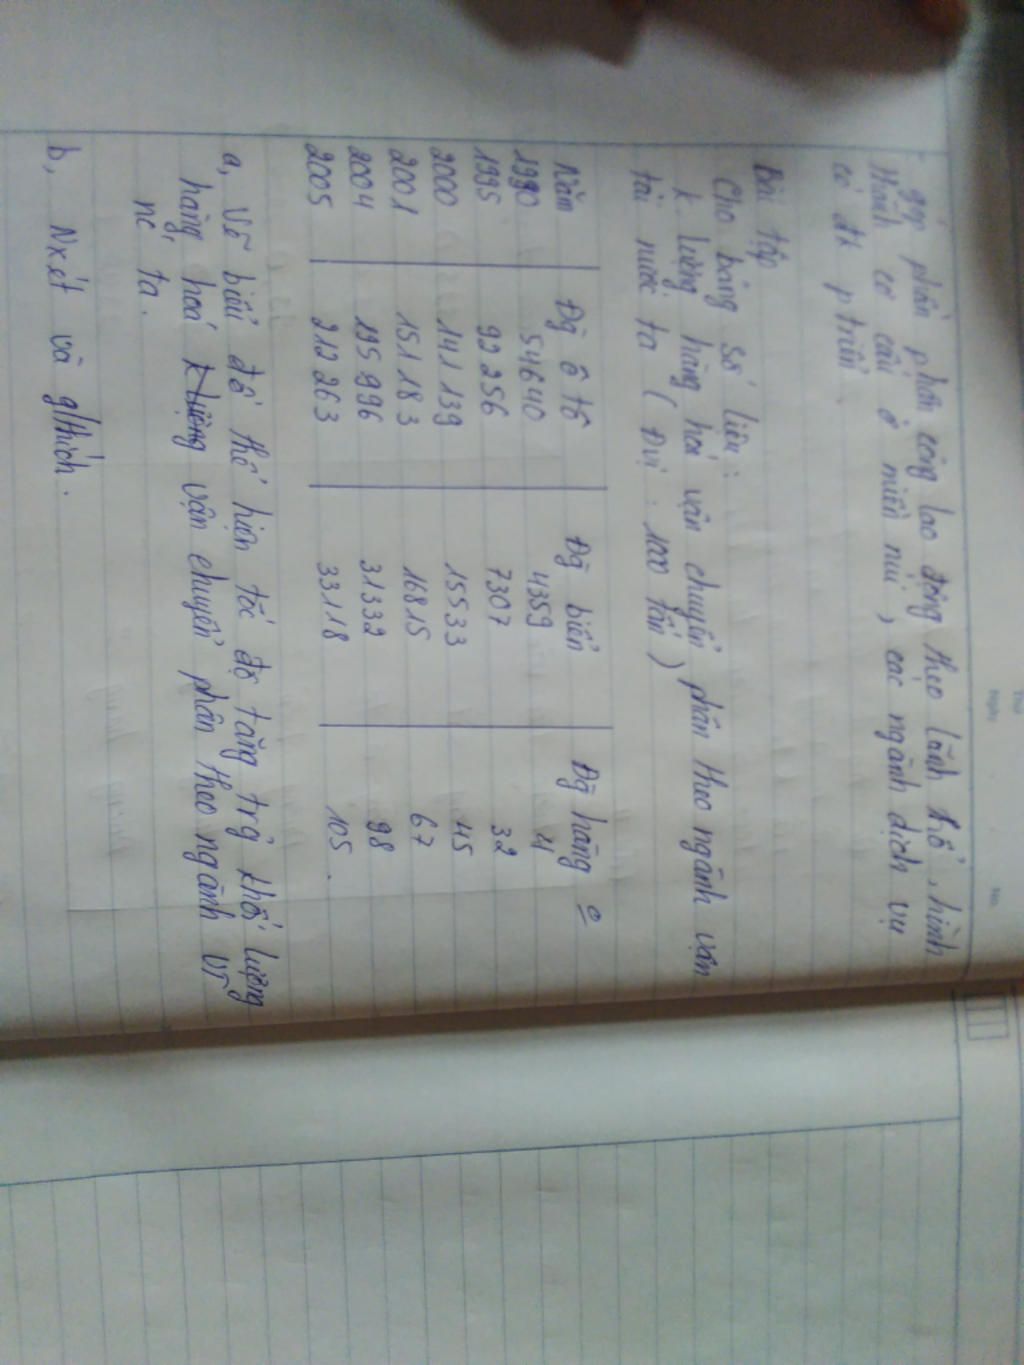 góp phần phân công lao động theo lãnh thổ, hình
thành cơ cấu ở miền núi, các ngành dịch vụ
có đk p triển.
Bài tập
Cho bảng số liệu:
k. lượng hàng hoá vận chuyển phân theo ngành vận
tải nước ta ( Đvị : 1000 tấn )
Năm Đg ô tô Đg biển Đg hàng o
1990 54640 4359 4
1995 92 256 7307 32
2000 141 139 15533 45
2001 151 183 16815 67
2004 195 996 31332 98
2005 212 263 33118 105.
a, Vẽ biểu đồ thể hiện tốc độ tăng trg khối lượng
hàng hoá vận chuyển phân theo ngành VT
nc ta.
b, Nxét và g/thích.
Thứ
Ngày
No.